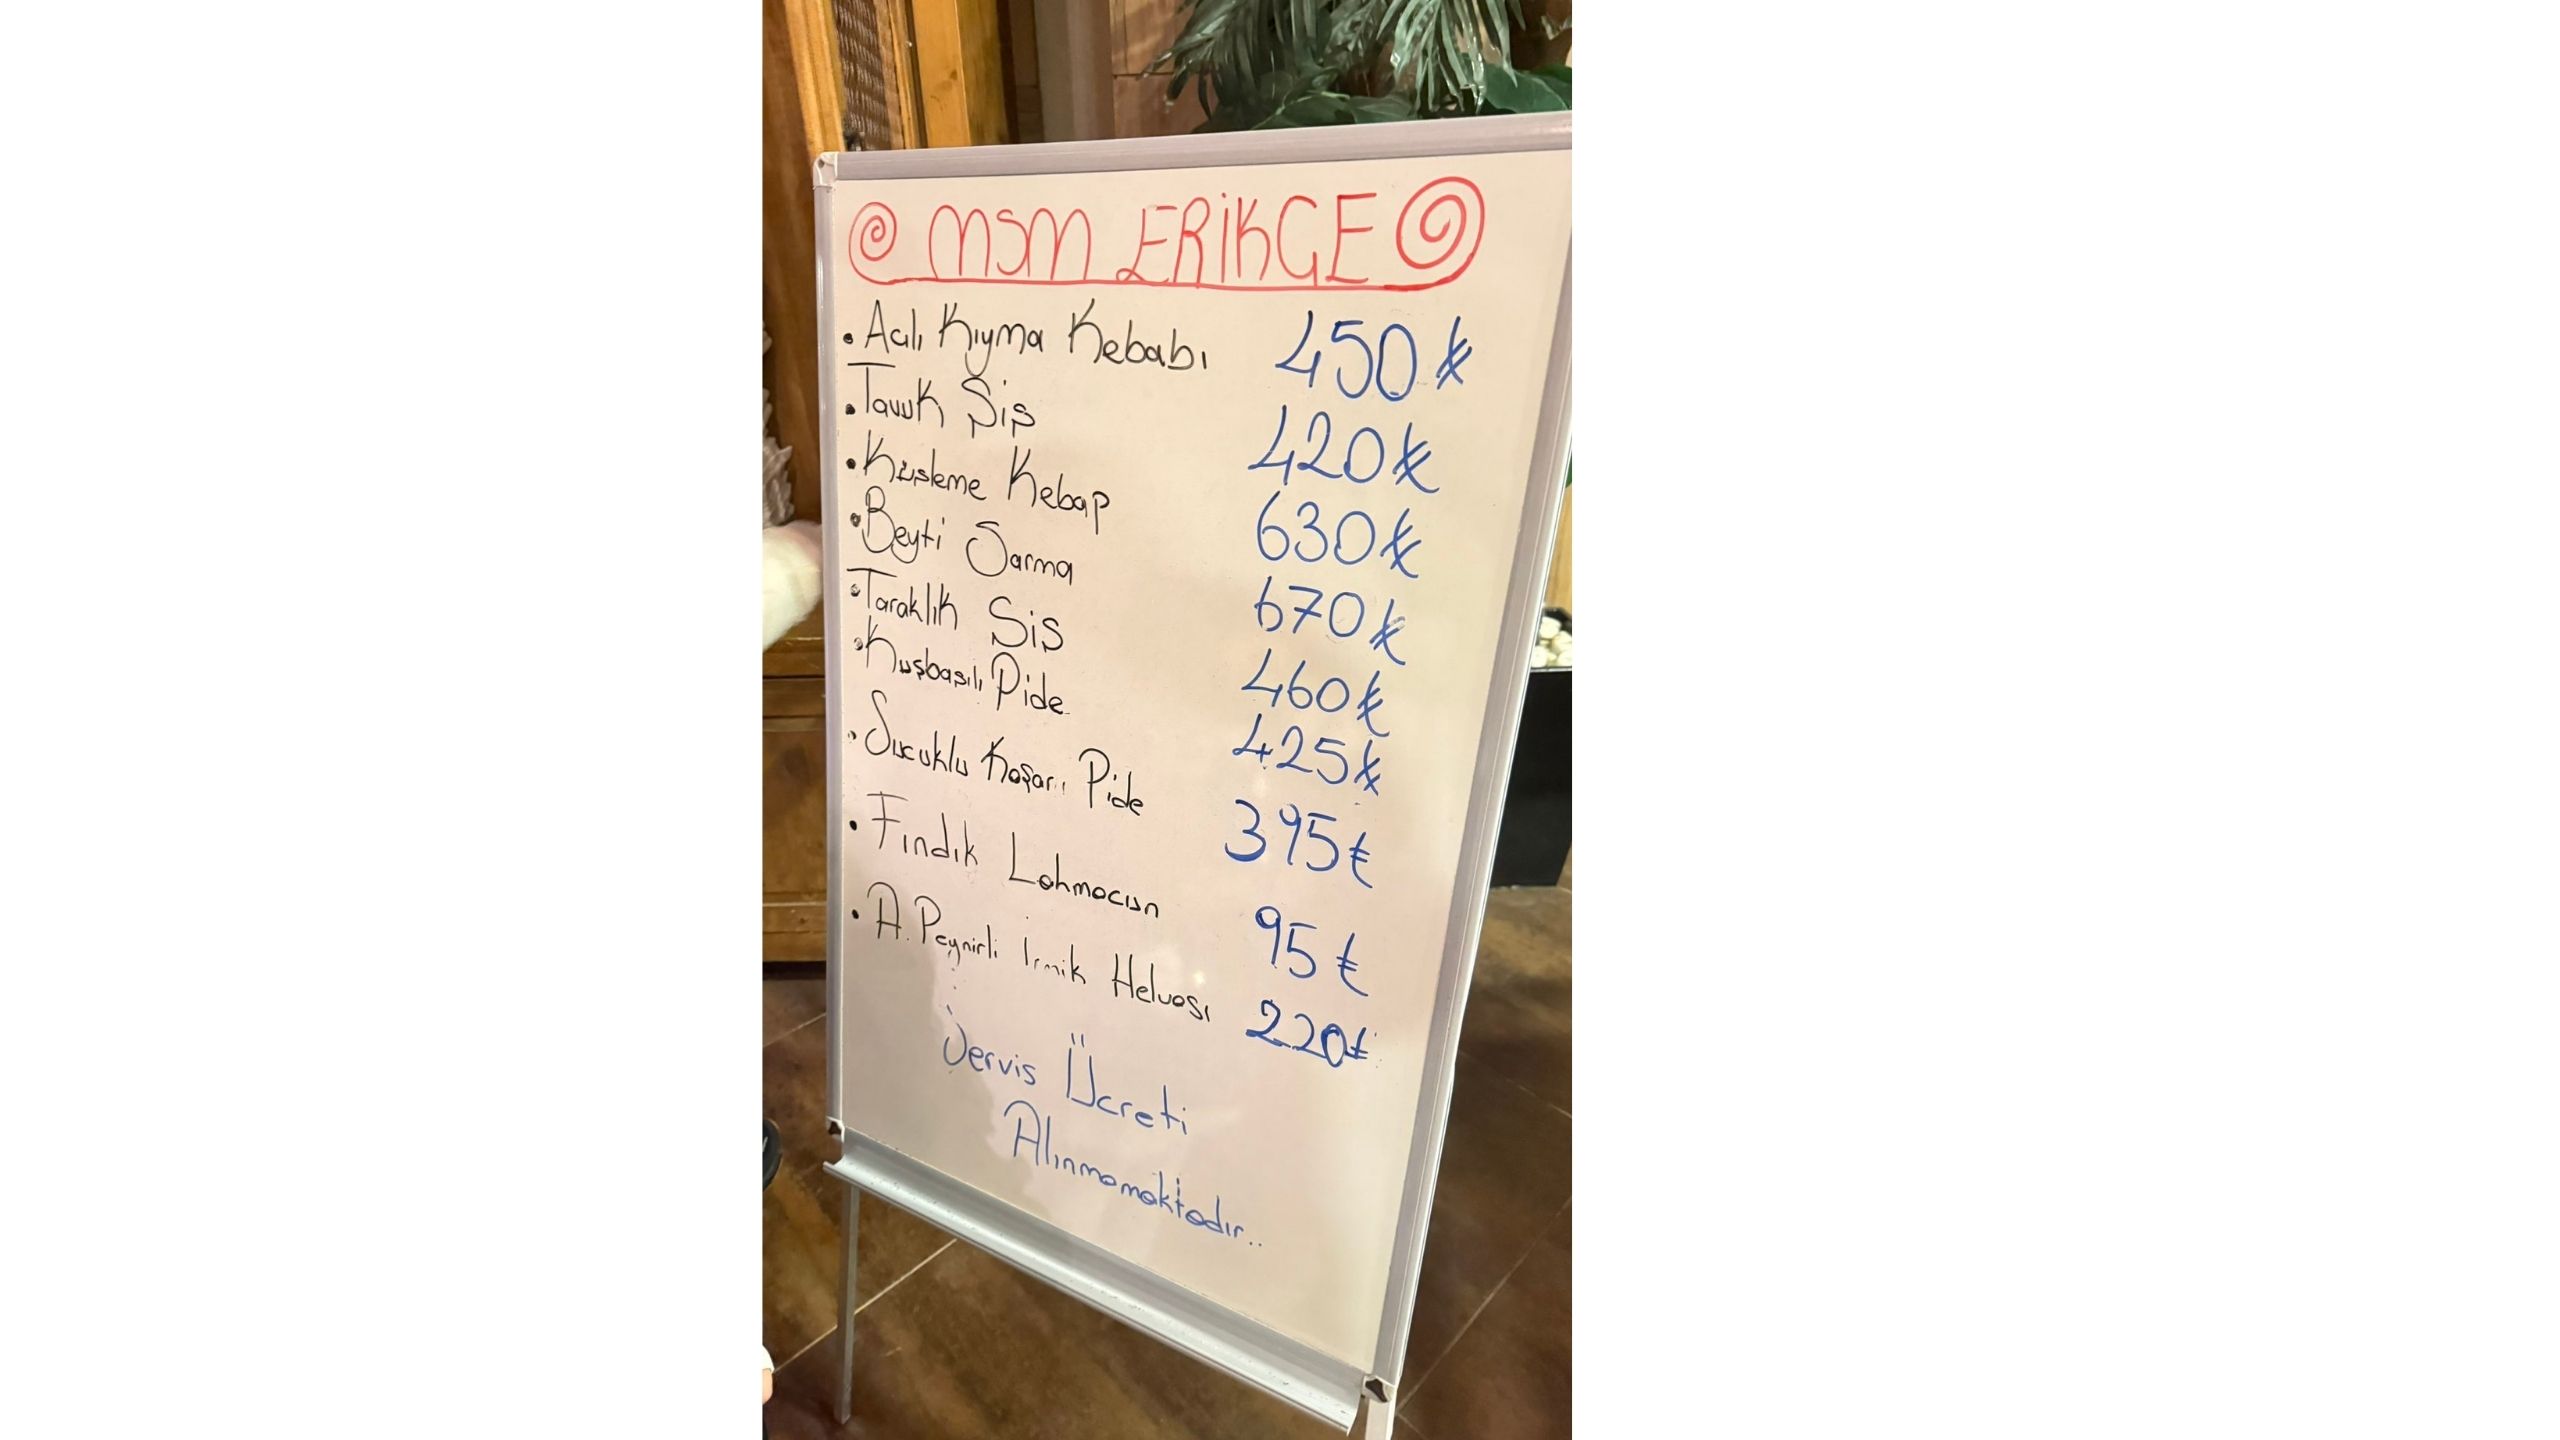 MSM ERİKGE
• Acılı Kıyma Kebabı 450 ₺
• Tavuk Şiş 420 ₺
• Küşleme Kebap 630 ₺
• Beyti Sarma 670 ₺
• Taraklık Şiş 460 ₺
• Kuşbaşılı Pide 425 ₺
• Sucuklu Kaşarlı Pide 395 ₺
• Fındık Lahmacun 95 ₺
• A. Peynirli Irmik Helvası 220 ₺
Servis Ücreti
Alınmamaktadır..